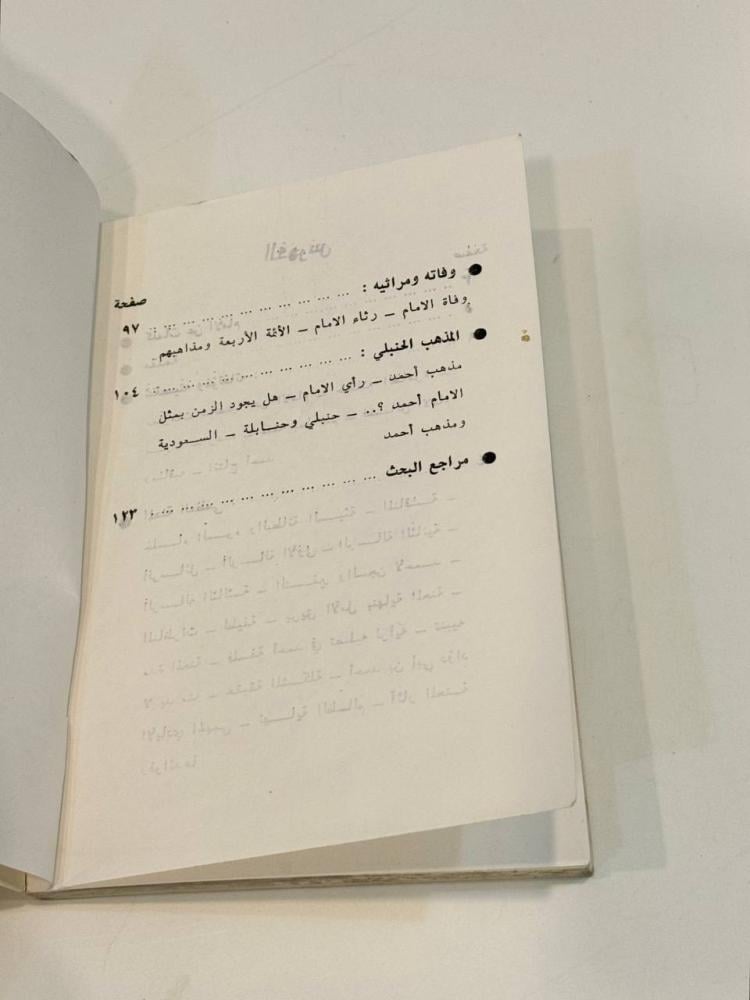 صفحة
● وفاته ومراثيه : ... ... ... ... ... ... ... ... ... ... ٩٧
وفاة الامام — رثاء الامام — الأئمة الأربعة ومذاهبهم
● المذهب الحنبلي : ... ... ... ... ... ... ... ... ... ١٠٤
مذهب أحمد — رأي الامام — هل يجود الزمن بمثل
الامام أحمد ؟.. — حنبلي وحنابلة — السعودية
ومذهب أحمد
● مراجع البحث ... ... ... ... ... ... ... ... ... ١٢٣